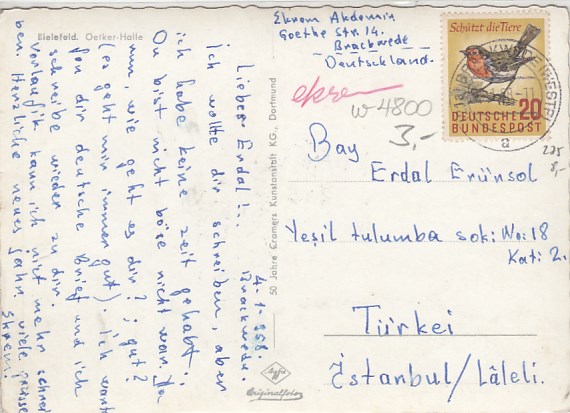 Bielefeld. Oetker-Halle
Ekrem Akdemir
Goethe Str. 14.
Brackwede
Deutschland.
ekrem
W-4800
3,-
Schützt die Tiere
20
DEUTSCHE
BUNDESPOST
a
275
8,-
Bay
Erdal Erünsol
Yeşil tulumba sok: No: 18
Kat: 2.
Türkei
İstanbul/Lâleli.
4.1.958.
Brackwede.
Lieber Erdal!..
Ich wollte dir schreiben, aber
ich habe keine zeit gehabt;
Du bist nicht böse nicht war. Na
nun, wie geht es dir? ; gut?
(es geht mir immer gut). ich
von dir deutsche Brief und ich
schreibe wieder zu dir.
Vorläufik kann ich nicht mehr schrei
ben. Herzliche neues Jahr. viele grüsse
Ekrem!
50 Jahre Cramers Kunstanstalt KG., Dortmund
Agfa
Originalfoto